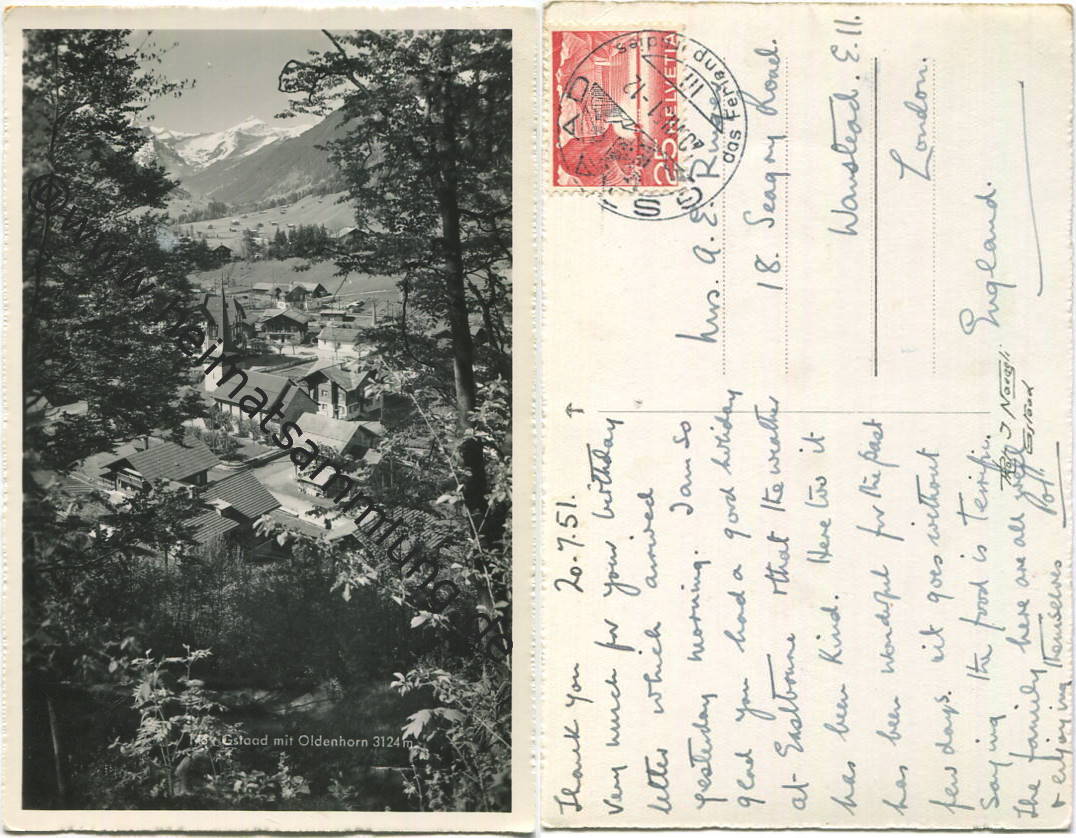 Gstaad mit Oldenhorn 3124m
heimatsammlung.de
HELVETIA
25
das Ferien
20.7.51.
Thank you
very much for your birthday
letter which arrived
yesterday morning. I am so
glad you had a good holiday
at Eastbourne & that the weather
has been kind. Here too it
has been wonderful for the past
few days. it goes without
saying the food is terrific.
The family here are all well
& enjoying themselves
Mrs. A. E.
18. Seagry Road.
Wanstead. E.11.
London.
England.
Gstaad